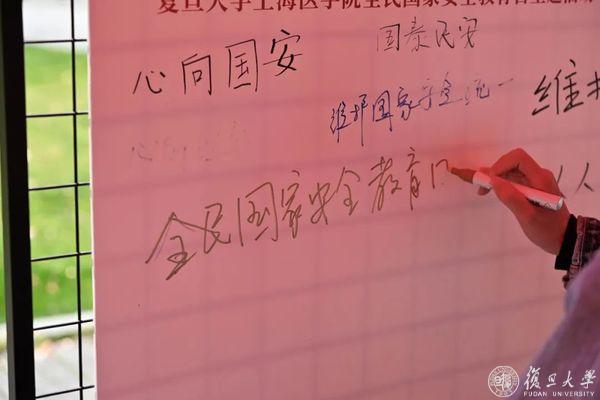 复旦大学上海医学院全民国家安全教育日主题活动
国泰民安
心向国安
国家 统一
维
全民国家安全教育
復旦大學
FUDAN UNIVERSITY